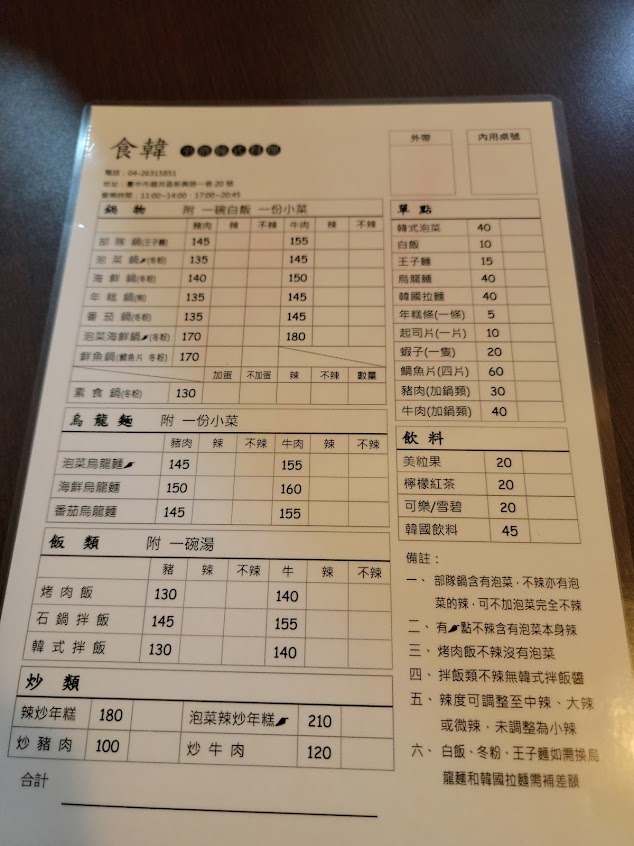 食韓 平價韓式料理
外帶 內用桌號
電話：04-26315851
地址：臺中市龍井區新興路一巷 20 號
營業時間：11:00~14:00、17:00~20:45
鍋 物 附 一碗白飯 一份小菜
豬肉 辣 不辣 牛肉 辣 不辣
部 隊 鍋(王子麵) 145 155
泡 菜 鍋(冬粉) 135 145
海 鮮 鍋(冬粉) 140 150
年 糕 鍋(無) 135 145
番 茄 鍋(冬粉) 135 145
泡菜海鮮鍋(冬粉) 170 180
鮮魚鍋(鯛魚片 冬粉) 170
加蛋 不加蛋 辣 不辣 數量
素 食 鍋(冬粉) 130
烏 龍 麵 附 一份小菜
豬肉 辣 不辣 牛肉 辣 不辣
泡菜烏龍麵 145 155
海鮮烏龍麵 150 160
番茄烏龍麵 145 155
飯 類 附 一碗湯
豬 辣 不辣 牛 辣 不辣
烤 肉 飯 130 140
石 鍋 拌 飯 145 155
韓 式 拌 飯 130 140
炒 類
辣炒年糕 180 泡菜辣炒年糕 210
炒 豬 肉 100 炒 牛 肉 120
合計
單 點
韓式泡菜 40
白飯 10
王子麵 15
烏龍麵 40
韓國拉麵 40
年糕條(一條) 5
起司片(一片) 10
蝦子(一隻) 20
鯛魚片(四片) 60
豬肉(加鍋類) 30
牛肉(加鍋類) 40
飲 料
美粒果 20
檸檬紅茶 20
可樂/雪碧 20
韓國飲料 45
備註：
一、 部隊鍋含有泡菜，不辣亦有泡
菜的辣，可不加泡菜完全不辣
二、 有點不辣含有泡菜本身辣
三、 烤肉飯不辣沒有泡菜
四、 拌飯類不辣無韓式拌飯醬
五、 辣度可調整至中辣、大辣
或微辣，未調整為小辣
六、 白飯、冬粉、王子麵如需換烏
龍麵和韓國拉麵需補差額